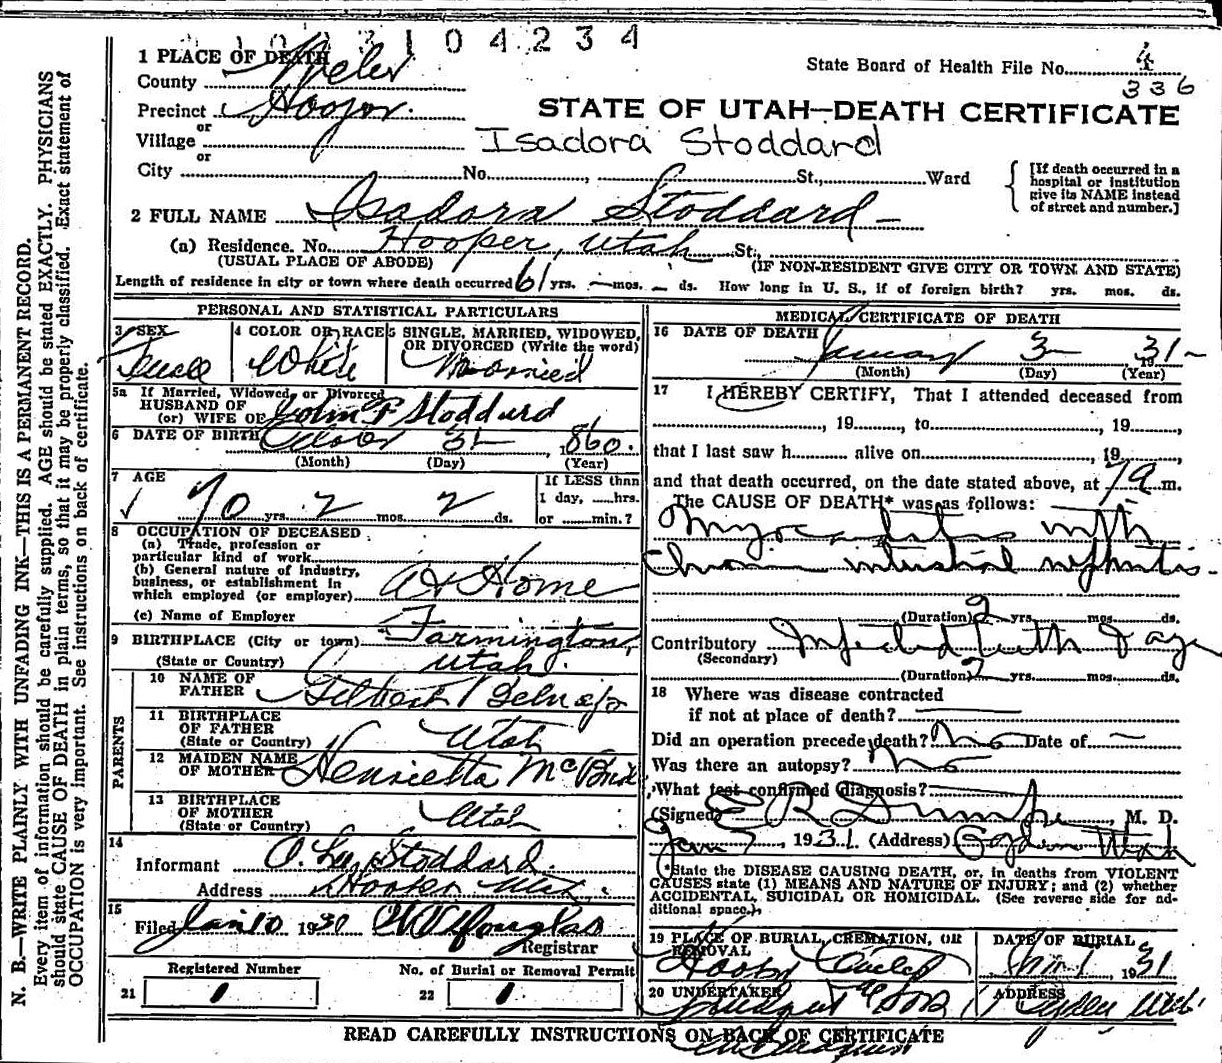 1 0 3 1 0 4 2 3 4
1 PLACE OF DEATH
County Weber
Precinct Hooper.
or
Village
or
City No. , St., Ward
State Board of Health File No. 4
336
STATE OF UTAH—DEATH CERTIFICATE
Isadora Stoddard
[If death occurred in a
hospital or institution
give its NAME instead
of street and number.]
2 FULL NAME Isadora Stoddard
(a) Residence. No. Hooper, Utah St.,
(USUAL PLACE OF ABODE) (IF NON-RESIDENT GIVE CITY OR TOWN AND STATE)
Length of residence in city or town where death occurred 61 yrs. — mos. — ds. How long in U. S., if of foreign birth? yrs. mos. ds.
PERSONAL AND STATISTICAL PARTICULARS
3 SEX 4 COLOR OR RACE 5 SINGLE, MARRIED, WIDOWED,
OR DIVORCED (Write the word)
White Married
5a If Married, Widowed, or Divorced
HUSBAND OF
(or) WIFE OF John F Stoddard
6 DATE OF BIRTH 31 1860.
(Month) (Day) (Year)
7 AGE If LESS than
1 day, ......hrs.
70 yrs. 2 mos. 2 ds. or ......min.?
8 OCCUPATION OF DECEASED
(a) Trade, profession or
particular kind of work
(b) General nature of industry,
business, or establishment in
which employed (or employer) At Home
(c) Name of Employer
9 BIRTHPLACE (City or town) Farmington,
(State or Country) Utah.
PARENTS
10 NAME OF
FATHER Gilbert Belnap
11 BIRTHPLACE
OF FATHER
(State or Country) Utah
12 MAIDEN NAME
OF MOTHER Henrietta McBride
13 BIRTHPLACE
OF MOTHER
(State or Country) Utah
14
Informant O. Lee Stoddard.
Address Hooper Utah.
15
Filed Jan 10 1930 Douglas
Registrar
Registered Number No. of Burial or Removal Permit
21 1 22 1
MEDICAL CERTIFICATE OF DEATH
16 DATE OF DEATH
January 3 1931
(Month) (Day) (Year)
17 I HEREBY CERTIFY, That I attended deceased from
, 19 , to , 19 ,
that I last saw h alive on , 19 ,
and that death occurred, on the date stated above, at 7 a m.
The CAUSE OF DEATH* was as follows:
Myocarditis with
Chronic interstitial nephritis.
(Duration) 2 yrs. mos. ds.
Contributory Infected teeth
(Secondary)
(Duration) ? yrs. mos. ds.
18 Where was disease contracted
if not at place of death?
Did an operation precede death? No Date of —
Was there an autopsy? No
What test confirmed diagnosis?
(Signed) E R Dumke , M. D.
Jan 5 1931 (Address) Ogden Utah
*State the DISEASE CAUSING DEATH, or, in deaths from VIOLENT
CAUSES state (1) MEANS AND NATURE OF INJURY; and (2) whether
ACCIDENTAL, SUICIDAL OR HOMICIDAL. (See reverse side for ad-
ditional space.)
19 PLACE OF BURIAL, CREMATION, OR
REMOVAL DATE OF BURIAL
Hooper 1931
20 UNDERTAKER ADDRESS
Lindquist & Sons Ogden Utah
READ CAREFULLY INSTRUCTIONS ON BACK OF CERTIFICATE
N. B.—WRITE PLAINLY WITH UNFADING INK—THIS IS A PERMANENT RECORD.
Every item of information should be carefully supplied. AGE should be stated EXACTLY. PHYSICIANS
should state CAUSE OF DEATH in plain terms, so that it may be properly classified. Exact statement of
OCCUPATION is very important. See instructions on back of certificate.